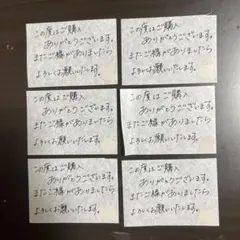 この度はご購入
ありがとうございます。
またご縁がありましたら
よろしくお願いいたします。
この度はご購入
ありがとうございます。
またご縁がありましたら
よろしくお願いいたします。
この度はご購入
ありがとうございます。
またご縁がありましたら
よろしくお願いいたします。
この度はご購入
ありがとうございます。
またご縁がありましたら
よろしくお願いいたします。
この度はご購入
ありがとうございます。
またご縁がありましたら
よろしくお願いいたします。
この度はご購入
ありがとうございます。
またご縁がありましたら
よろしくお願いいたします。